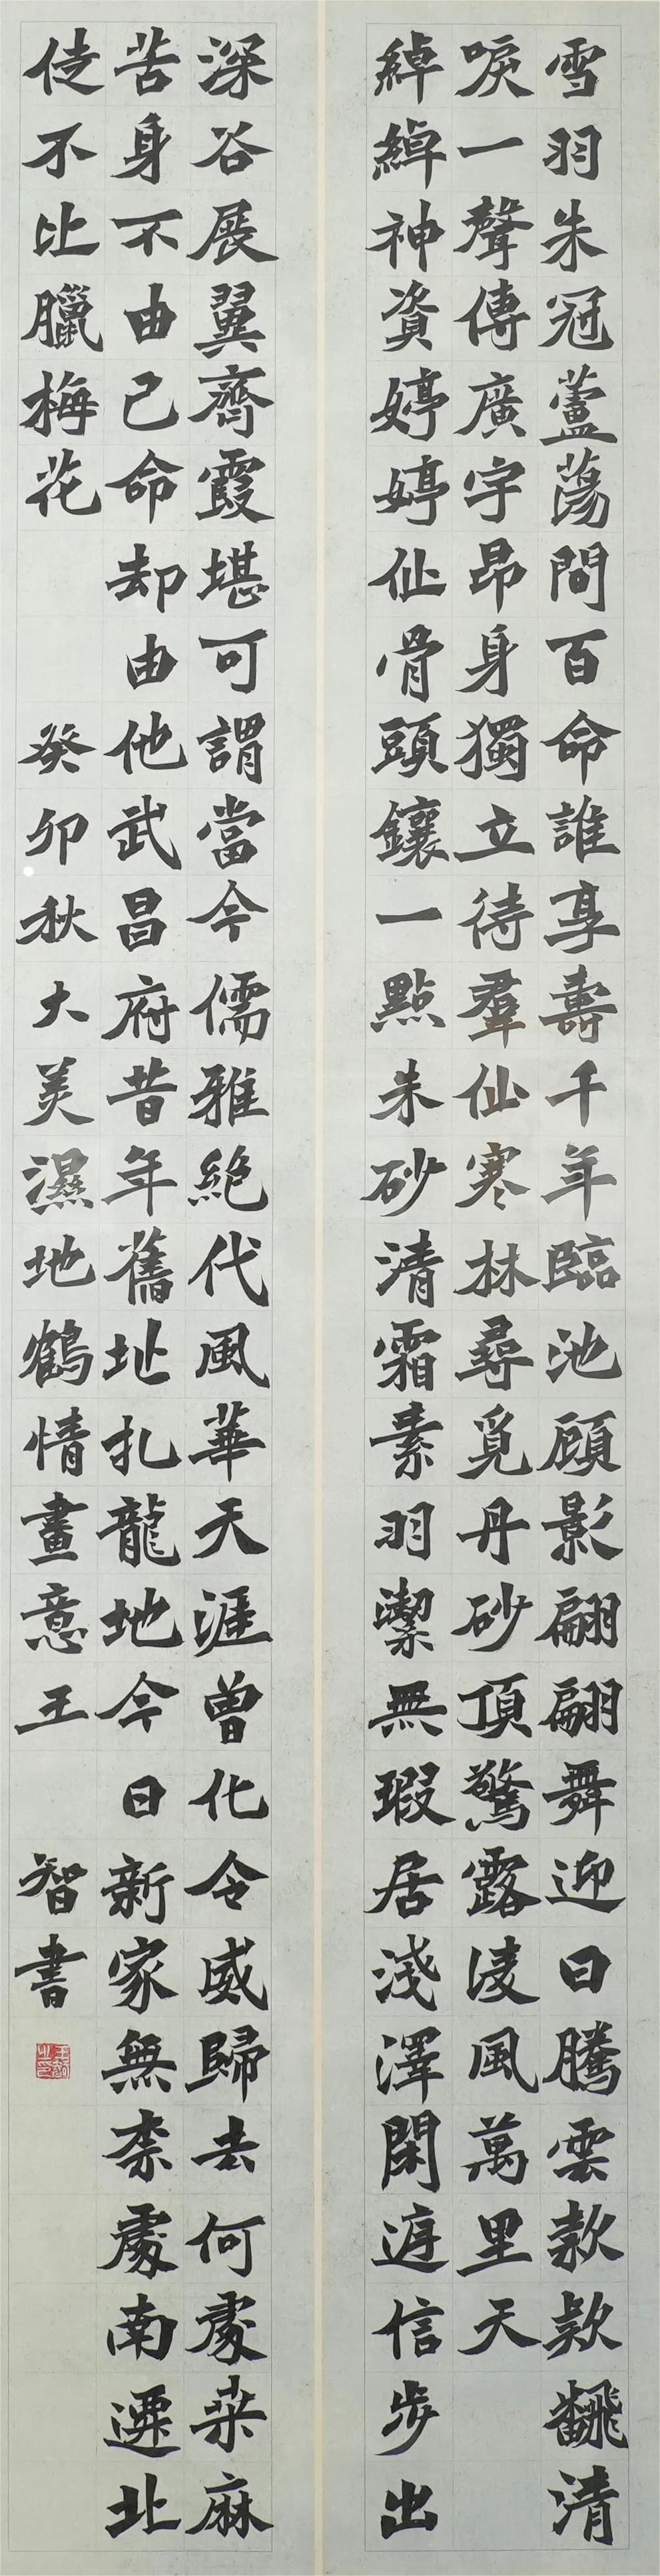 雪羽朱冠蘆蕩間百命誰享壽千年臨池顧影翩翩舞迎日騰雲款款飜清
唳一聲傳廣宇昂身獨立待羣仙寒林尋覓丹砂頂驚露淩風萬里天
綽綽神資婷婷仙骨頭鑲一點朱砂清霜素羽潔無瑕居淺澤閑遊信步出
深谷展翼齊霞堪可謂當今儒雅絶代風華天涯曾化令威歸去何處桑麻
苦身不由己命却由他武昌府昔年舊址扎龍地今日新家無柰處南遷北
徙不比臘梅花 癸卯秋大美濕地鶴情畫意王 智書
王智之印